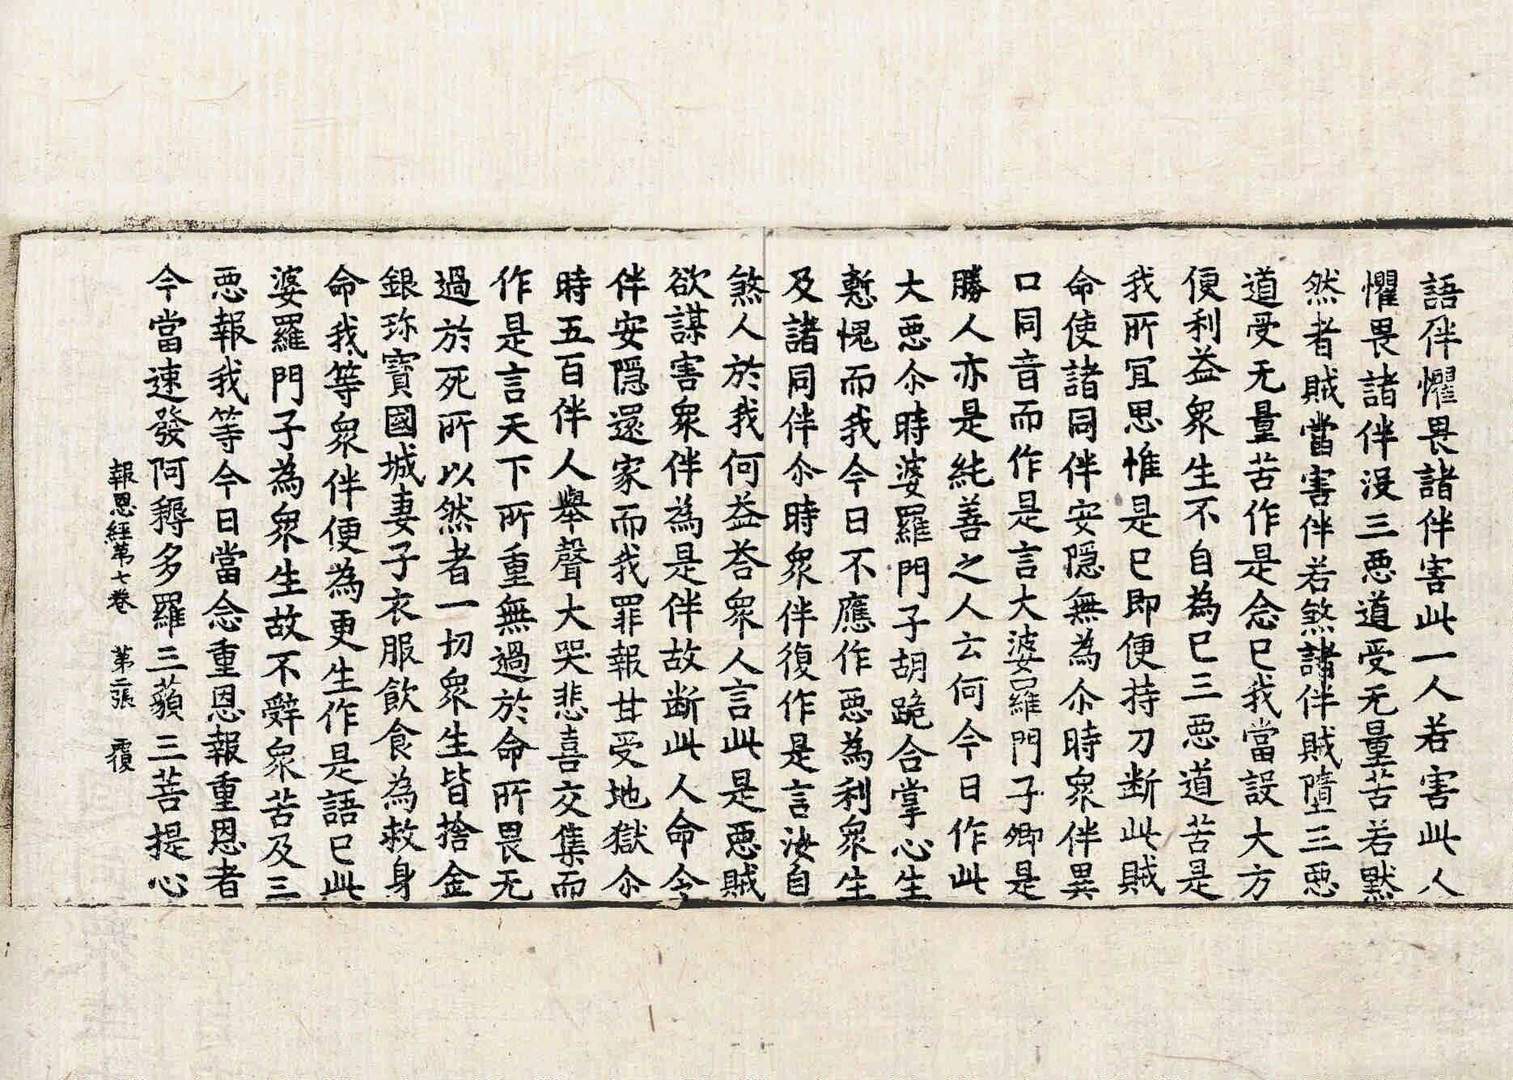 語伴懼畏諸伴害此一人若害此人
懼畏諸伴没三惡道受无量苦若默
然者賊當害伴若煞諸伴賊墮三惡
道受无量苦作是念已我當設大方
便利益眾生不自為已三惡道苦是
我所冝思惟是已即便持刀断此賊
命使諸同伴安隱無為尒時眾伴異
口同音而作是言大婆羅門子卿是
勝人亦是純善之人云何今日作此
大惡尒時婆羅門子胡跪合掌心生
慙愧而我今日不應作惡為利眾生
及諸同伴尒時眾伴復作是言汝自
煞人於我何益荅眾人言此是惡賊
欲謀害眾伴為是伴故断此人命令
伴安隱還家而我罪報甘受地獄尒
時五百伴人舉聲大哭悲喜交集而
作是言天下所重無過於命所畏无
過於死所以然者一切眾生皆捨金
銀珎寶國城妻子衣服飲食為救身
命我等眾伴便為更生作是語已此
婆羅門子為眾生故不辤眾苦及三
惡報我等今日當念重恩報重恩者
今當速發阿耨多羅三藐三菩提心
報恩經苐七卷 苐二張 覆